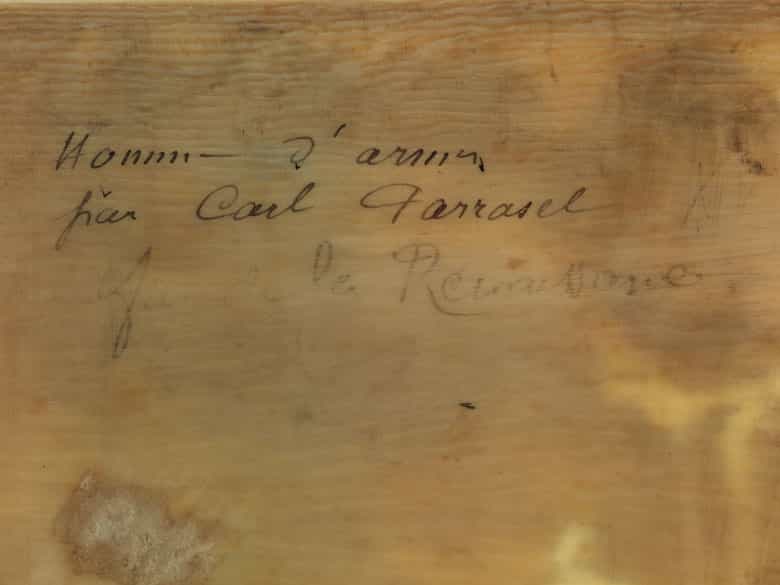 Homme d'armes
par Carl Parrasel
de la Renaissance